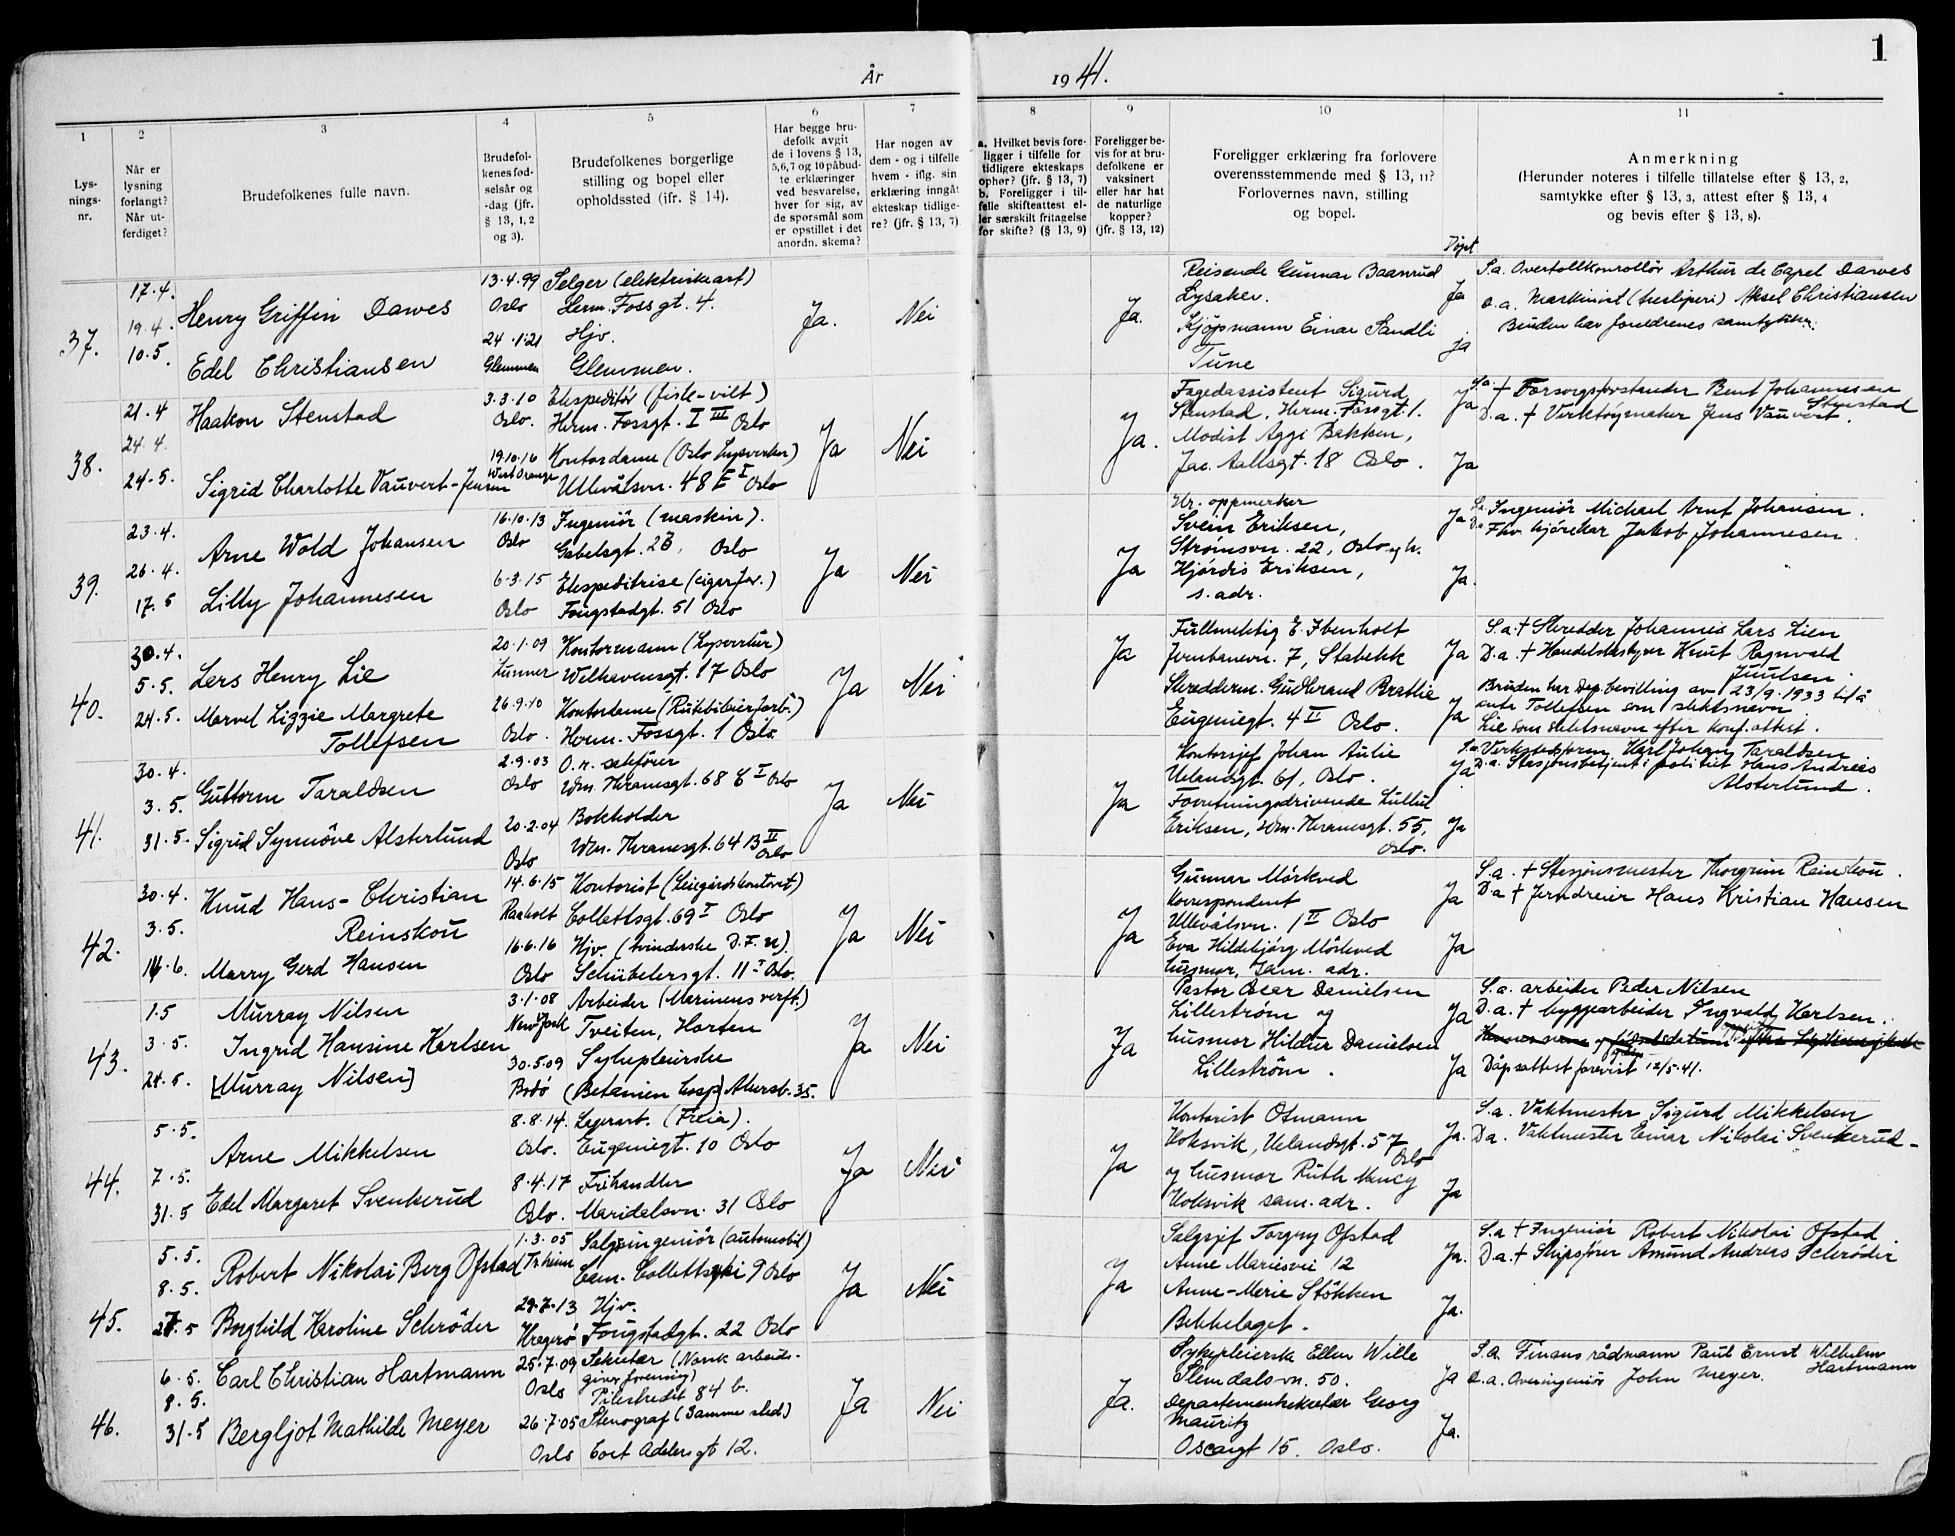 1
År 1941.
1
2
3
4
5
6
7
8
9
10
11
Lys-
nings-
nr.
Når er
lysning
forlangt?
Når ut-
ferdiget?
Brudefolkenes fulle navn.
Brudefol-
kenes fød-
selsår og
-dag (jfr.
§ 13, 1, 2
og 3).
Brudefolkenes borgerlige
stilling og bopel eller
opholdssted (ifr. § 14).
Har begge bru-
defolk avgit
de i lovens § 13,
5,6,7 og 10 påbud-
te erklæringer
ved besvarelse,
hver for sig, av
de spørsmål som
er opstillet i det
anordn. skema?
Har nogen av
dem - og i tilfelle
hvem - iflg. sin
erklæring inngåt
ekteskap tidlige-
re? (jfr. § 13, 7)
a. Hvilket bevis fore-
ligger i tilfelle for
tidligere ekteskaps
ophør? (jfr. § 13, 7)
b. Foreligger i til-
felle skifteattest el-
ler særskilt fritagelse
for skifte? (§ 13, 9)
Foreligger be-
vis for at bru-
defolkene er
vaksinert
eller har hat
de naturlige
kopper?
(jfr. § 13, 12)
Foreligger erklæring fra forlovere
overensstemmende med § 13, 11?
Forlovernes navn, stilling
og bopel.
Døpt
Anmerkning
(Herunder noteres i tilfelle tillatelse efter § 13, 2,
samtykke efter § 13, 3, attest efter § 13, 4
og bevis efter § 13, 8).
37.
17.4.
19.4.
10.5.
Henry Griffin Dawes
Edel Christiansen
13.4.99
Oslo
24.1.21
Glemmen
Selger (elektriske art)
Herm. Fossgt. 4.
Hjv.
Glemmen.
Ja.
Nei
Ja.
Reisende Gunnar Baanrud
Lysaker.
Kjøpmann Einar Sandli
Tune
Ja
ja
S.a. Overtollkonrollør Arthur de Capel Dawes
D.a. Maskinist (tresliperi) Aksel Christiansen
Bruden har foreldrenes samtykke.
38.
21.4
24.4.
24.5.
Haakon Stenstad
Sigrid Charlotte Vauvert-Jensen
3.3.10
Oslo.
19.10.16
West Orange
Ekspeditør (fisk-vilt)
Herm. Fossgt. I III Oslo
Kontordame (Oslo Lysverker)
Ullevålsvn. 48 E I Oslo
Ja
Nei
Ja.
Fagedassistent Sigurd
Stenstad, Herm. Fossgt. 1.
Modist Aggi Bakken,
Jac. Aallsgt. 18 Oslo.
Ja
Ja
S.a. † Forsorgsforstander Bent Johannesen
Stenstad
D.a. † Verktøymaker Jens Vauvert.
39.
23.4.
26.4.
17.5
Arne Wold Johansen
Lilly Johannesen
16.10.13
Oslo
6.3.15
Oslo
Ingeniør (maskin).
Gabelsgt. 2B, Oslo
Ekspeditrise (cigarforr.)
Fougstadgt. 51 Oslo
Ja
Nei
Ja
Hr. oppmerker
Svein Eriksen,
Strømsvn. 22, Oslo og h.
Hjørdis Eriksen,
s. adr.
Ja
Ja.
S.a. Ingeniør Michael Arnt Johansen.
D.a. Fhv. kjørekar Jakob Johannesen.
40.
30.4.
5.5.
24.5.
Lars Henry Lie
Marvel Lizzie Margrete
Tollefsen
20.1.09
Lunner
26.9.10
Oslo.
Kontormann (Lysverker)
Welhavensgt. 17 Oslo
Kontordame (Rutebileierforb.)
Herm. Fossgt. 1 Oslo.
Ja
Nei
Ja
Fullmektig E. Ibenholt
Jernbanevn. 7, Stabekk
Skredderm. Gudbrand Brattlie
Eugeniegt. 4 II Oslo.
Ja
Ja
S.a. † Skredder Johannes Lars Lien
D.a. † Handelsbestyrer Knut Ragnvald
Juulsen.
Bruden har Dep. bevilling av 23/9.1933 til å
anta Tollefsen som slektsnavn
Lie som slektsnavn efter konf. attest.
41.
30.4.
3.5.
31.5.
Guttorm Taraldsen
Sigrid Synnöve Alsterlund
2.9.03
Oslo
20.2.04
Oslo
O.r. sakfører
Wm. Thranesgt. 68 E I Oslo
Bokholder
Wm. Thranesgt. 64 B II
Oslo
Ja
Nei
Ja
Kontorsjef Johan Aulie
Uelandsgt. 61, Oslo.
Forretningsdrivende Lullul
Eriksen, Wm. Thranesgt. 55,
Oslo.
Ja
Ja
S.a. Verkstedsform. Karl Johan Taraldsen
D.a. Stasjonsbetjent i politiet Hans Andreas
Alsterlund.
42.
30.4.
3.5.
14.6.
Knud Hans-Christian
Reinskou
Marry Gerd Hansen
14.6.15
Raaholt
16.6.16
Oslo
Kontorist (Leiegårdskontoret)
Collettsgt. 69 I Oslo
Hjv. (kvinderske D.F.N).
Schübelersgt. 11 I Oslo.
Ja
Nei
Ja
Gunnar Mörkved
korrespondent
Ullevålsvn. 1 II Oslo
Eva Hildebjørg Mörkved
husmor, sam. adr.
Ja
Ja
S.a. † Stasjonsmester Thorgrim Reinskou.
D.a † Jerndreier Hans Kristian Hansen
43.
1.5
3.5.
24.5.
Murray Nilsen
Ingrid Hansine Karlsen
[Murray Nilsen]
3.1.08
New York
30.5.09
Bodö
Arbeider (Marinens verft.)
Tveiten, Horten
Sykepleierske
(Betanien hosp) Akersb. 35.
Ja
Nei
Ja
Pastor Oscar Danielsen
Lilleström og
husmor Hildur Danielsen
Lilleström.
Ja
Ja
S.a. arbeider Peder Nilsen
D.a. † byggearbeider Ingvald Karlsen.
Dåpsattest forevist 12/5.41.
44.
5.5.
7.5.
31.5
Arne Mikkelsen
Edel Margaret Svenkerud
8.8.14.
Oslo.
8.4.17
Oslo.
Lagerarb. (Freia).
Eugeniegt. 10 Oslo
Frihandler
Maridalsvn. 31 Oslo
Ja
Nei
Ja
Kontorist Otmann
Hoksvik, Uelandsgt. 57
Oslo
og husmor Ruth Nancy
Hoksvik sam. adr.
Ja.
Ja
S.a. Vaktmester Sigurd Mikkelsen
D.a. Vaktmester Einar Nikolai Svenkerud-
45.
5.5.
8.5.
27.5
Robert Nikolai Berg Ofstad
Borghild Karoline Schröder
1.3.05
Tr.heim
29.7.13
Kragerö
Salgsingeniör (automobil)
Cam. Collettsvei 9 Oslo
Hjv.
Fougstadgt. 22 Oslo
Ja
Nei
Ja
Salgsjef Torgny Ofstad
Anne Mariesvei 12
Anne-Marie Stökken
Bekkelaget.
Ja.
Ja.
S.a † Ingeniör Robert Nikolai Ofstad.
D.a. † Skipsfører Amund Andreas Schröder
46.
6.5.
8.5.
31.5
Carl Christian Hartmann
Bergljot Mathilde Meyer
25.7.09
Oslo
26.7.05
Oslo
Sekretær (Norsk arbeids-
giver forening)
Pilestredet 84 b.
Stenograf (Samme sted)
Cort Adelersgt 12.
Ja
Nei
Ja.
Sykepleiersk Ellen Wille
Slemdalsvn. 50.
Departementsekretær Georg
Mauritz
Oscarsgt 15. Oslo.
Ja
Ja.
S.a. Finansrådmann Paul Ernst Wilhelm
Hartmann
D.a. Overingeniør John Meyer.